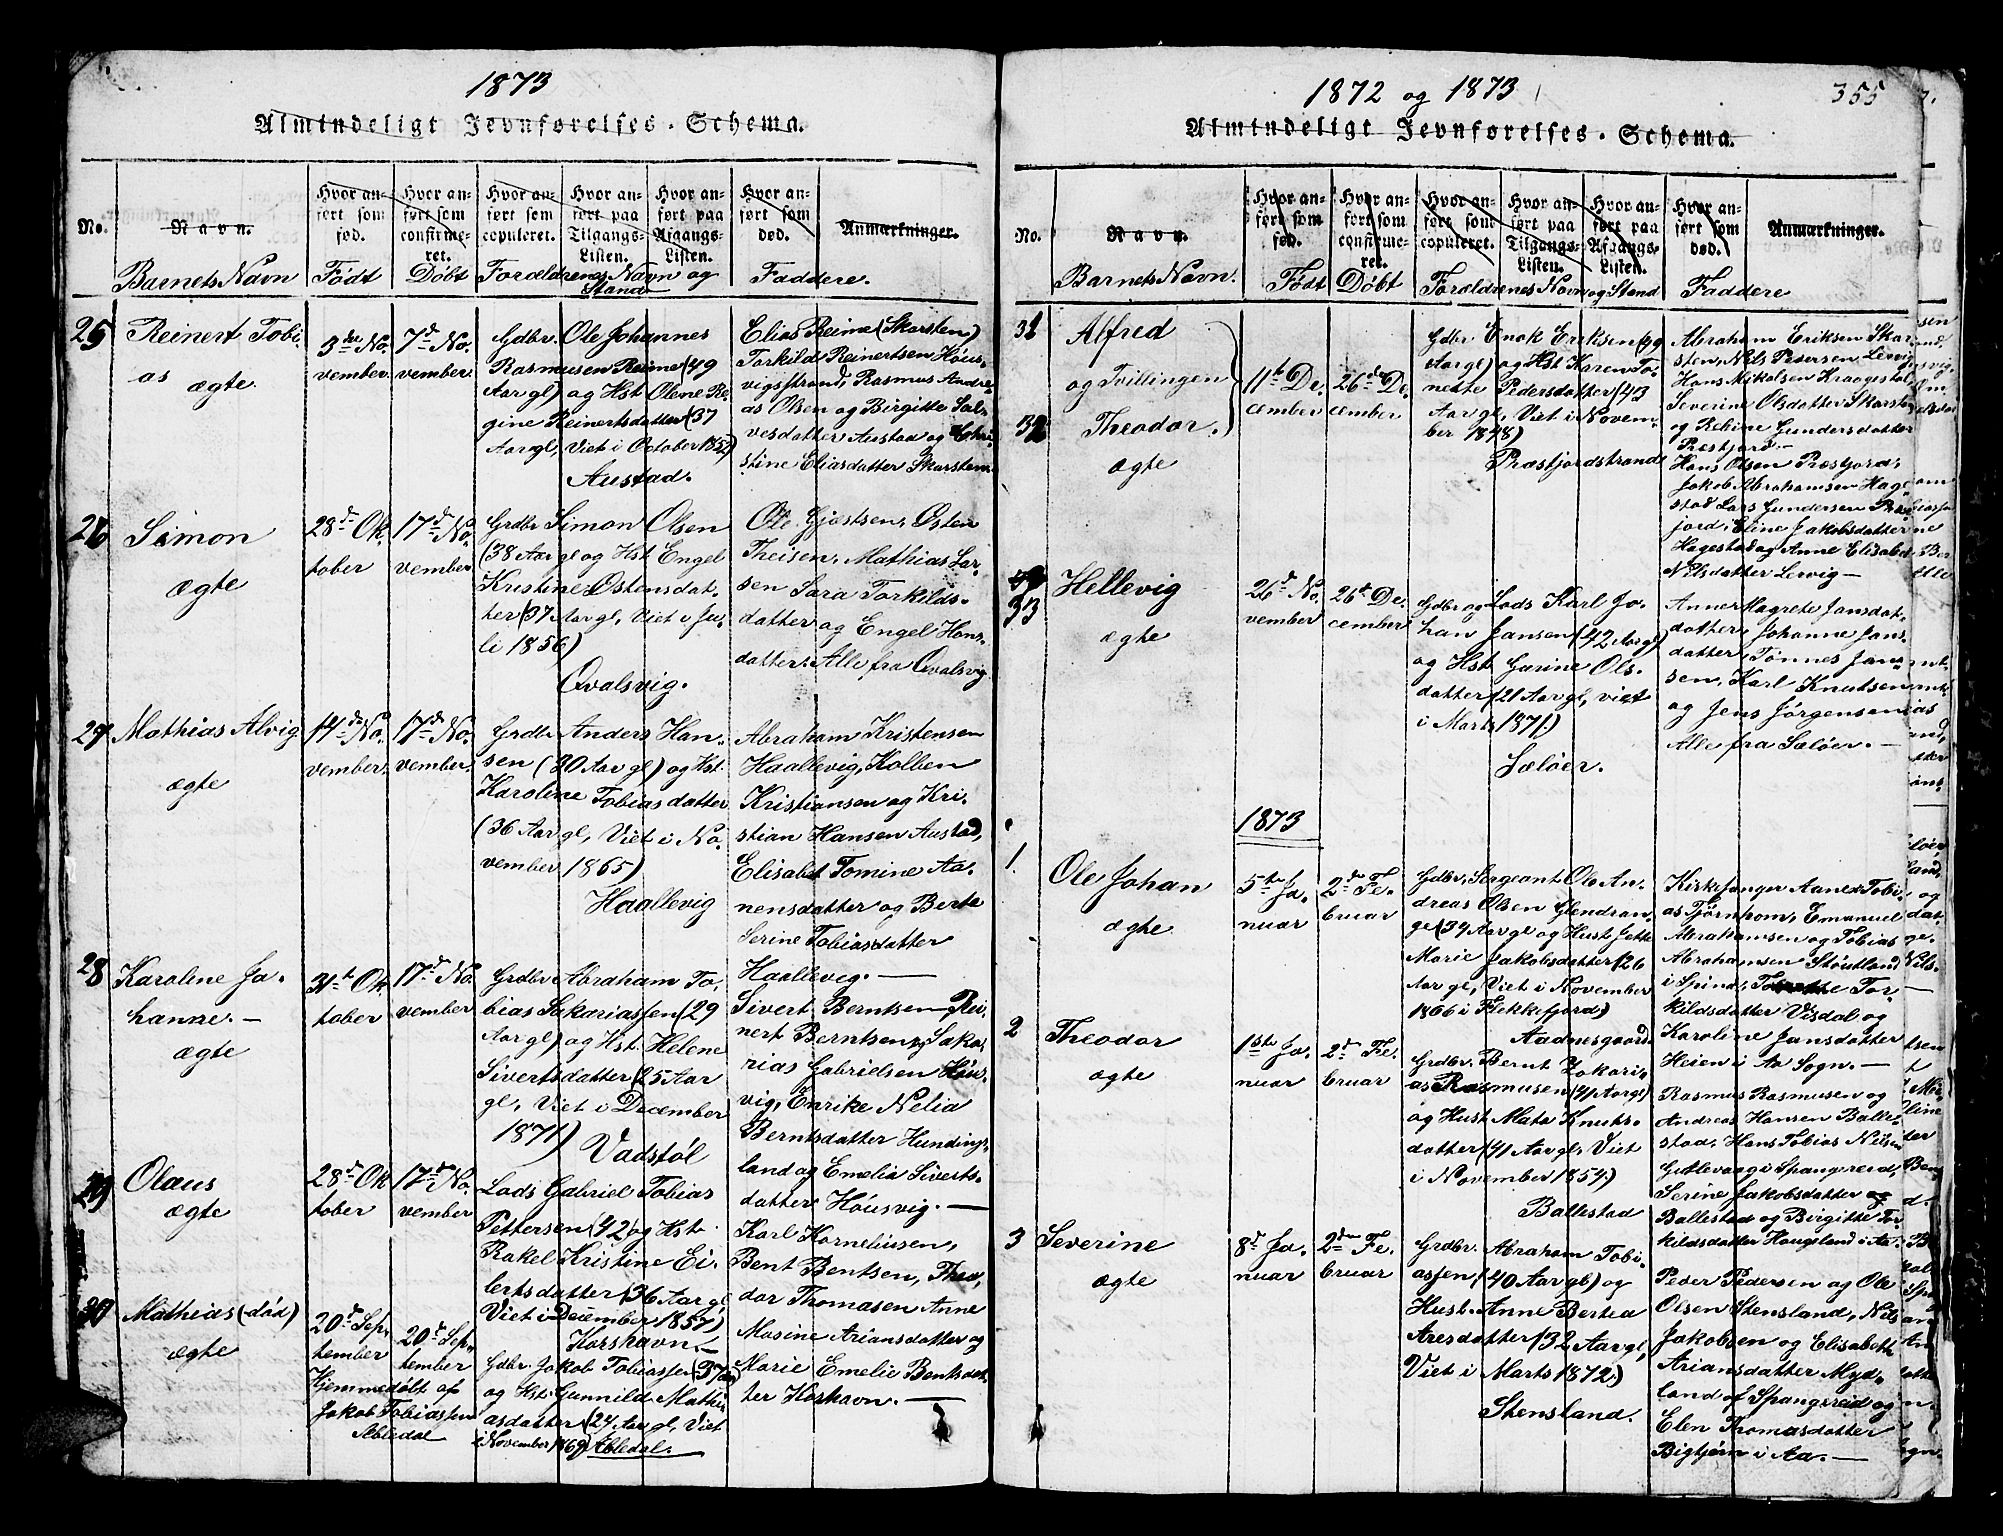 1873
Almindeligt Jevnførelses-Schema.
No.
Navn.
Hvor an-
ført som
fød.
Hvor an-
ført som
confirme-
ret.
Hvor an-
ført som
copuleret.
Hvor an-
ført paa
Tilgangs-
Listen.
Hvor an-
ført paa
Afgangs-
Listen.
Hvor an-
ført som
død.
Anmærkninger.
Barnets Navn
Født
Døbt
Forældrenes Navn og
Stand
Faddere.
25
Reinert Tobi-
as ægte
3die No-
vember
7d No-
vember
Gdbr. Ole Johannes
Rasmusen Reime (49
Aar gl) og Hst Olene Re-
gine Reinertsdatter (37
Aar gl, Viet i October 1857)
Austad.
Elias Reime (Skarsten)
Torkild Reinertsen Höus-
vigstrand, Rasmus Andre-
as Olsen og Birgitte Sal-
vesdatter Austad og Chri-
stine Eliasdatter Skarstem
26
Simon
ægte
28d Ok-
tober
17d No-
vember
Grdbr Simon Olsen
(38 Aar gl og Hst Engel
Kristine Ostensdat-
ter (37 Aar gl, Viet i Ju-
li 1856)
Qvalsvig.
Ole Gjertsen, Østen
Theisen, Mathias Lar-
sen Sara Torkilds-
datter og Engel Hans-
datter. Alle fra Qvalsvig
27
Mathias Alvig
ægte
14de No-
vember
17de No-
vember
Grdbr Anders Han-
sen (30 Aar gl) og Hst
Karoline Tobiasdatter
(36 Aar gl, Viet i No-
vember 1865)
Haallevig
Abraham Kristensen
Haallevig, Kolben
Kristiansen og Kri-
stian Hansen Austad,
Elisabet Tomine Aa-
nensdatter og Berte
Serine Tobiasdatter
Haallevig. —
28
Karoline Jo-
hanne. —
ægte
31t Ok-
tober
17d No-
vember
Grdbr Abraham To-
bias Sakariassen (29
Aar gl) og Hst. Helene
Sivertsdatter (25 Aar
gl, Viet i December
1871) Vadstøl
Sivert Berntsen Rei-
nert Berntsen, Saka-
rias Gabrielsen Höus-
vig, Enrike Nelia
Berntsdatter Hunding-
land og Emelia Siverts-
datter Höusvig. —
29
Olaus
ægte
28d Ok-
tober
17d No-
vember
Lods Gabriel Tobias
Pettersen (42 og Hst.
Rakel Kristine Ei-
lertsdatter (36 Aar gl
Viet i December 1857)
Korshavn. —
Karl Korneliusen,
Bent Bentsen, Theo-
dor Thomasen Anne
Masine Ariansdatter og
Marie Emelie Bentsdat-
ter Korshavn. —
30
Mathias (død)
ægte
20d Sep-
tember
20d Sep-
tember
Hjemmedøbt af
Jakob Tobiassen
Aabledal
Gdbr. Jakob Tobiassen (37 aar)
og Hst Gunnild Mathi-
asdatter (24 Aar gl, Viet
i November 1869) Abledal.
1872 og 1873
355
Almindeligt Jevnførelses-Schema.
No.
Navn.
Hvor an-
ført som
fød.
Hvor an-
ført som
confirme-
ret.
Hvor an-
ført som
copuleret.
Hvor an-
ført paa
Tilgangs-
Listen.
Hvor an-
ført paa
Afgangs-
Listen.
Hvor an-
ført som
død.
Anmærkninger.
Barnets Navn.
Født
Døbt
Forældrenes Navn og Stand
Faddere
31
Alfred
og Tvillingen
32
Theodor.
ægte
11t De-
cember
26de De-
cember
Gdbr Enok Eriksen (49
Aar gl) og Hst Karen To-
nette Pedersdatter (43
Aar gl, Viet i Novem-
ber 1848)
Præstfjordstrand
Abraham Eriksen Skar-
sten, Nils Pedersen Lervig
Hans Mikalsen Kraagestal
Severine Olsdatter Skarsten
og Rebine Gundersdatter
Præstfjord —
Hans Olsen Præstfjord,
Jakob Abrahamsen Hage-
stad Lars Gundersen Præst-
fjord, Eline Jakobsdatter
Hagestad og Anne Elisabet
Nilsdatter Lervig —
33
Hellevig
ægte
26d No-
vember
26d De-
cember
Gdbr og Lods Karl Jo-
han Jansen (42 Aar gl)
og Hst Garine Ols-
datter (21 Aar gl, viet
i Marts 1871.)
Sæløer.
Anne Magrete Jansdat-
datter, Johanne Jans-
datter, Tønnes Jan-
sen, Karl Knutsen
og Jens Jörgensen
Alle fra Sæløer. —
1873
1.
Ole Johan
ægte
5te Ja-
nuar
2de Fe-
bruar
Gdbr, Sergeant Ole An-
dreas Olsen Glendran-
ge (34 Aar gl og Hust Jette
Marie Jakobsdatter (26
Aar gl, Viet i November
1866 i Flekkefjord)
Aadnesgaard
Kirkesanger Aanen Tobi-
as Tjørnhom, Emanuel
Abrahamsen og Tobias
Abrahamsen Stöutland
i Spind, Tor-
kildsdatter Visdal og
Karoline Jansdatter
Heien i Aa Sogn. —
2
Theodor
ægte
1st Ja-
nuar
2d Fe-
bruar
Grdbr. Bernt Zakari-
as Rasmusen (41 Aar gl)
og Hust Mata Knuts-
datter (41 Aar gl, Viet
i November 1854)
Ballestad
Rasmus Rasmusen og
Andreas Hansen Balle-
stad, Hans Tobias Nilsen
Gitlevaag i Spangereid,
Serine Jakobsdatter og
Ballestad og Birgitte Tor-
kildsdatter Hougsland i Aa
3
Severine
ægte
8d Ja-
nuar
2den Fe-
bruar
Grdbr. Abraham Tobi-
assen (40 Aar gl) og
Hust. Anne Bertea
Aresdatter (32 Aar gl,
Viet i Marts 1872.)
Stensland.
Peder Pedersen og Ole
Olsen Stensland, Nils
Jakobsen og Elisabeth
Ariansdatter Myd-
land af Spangereid og
Elen Thomasdatter
Bigtjørn i Aa. —